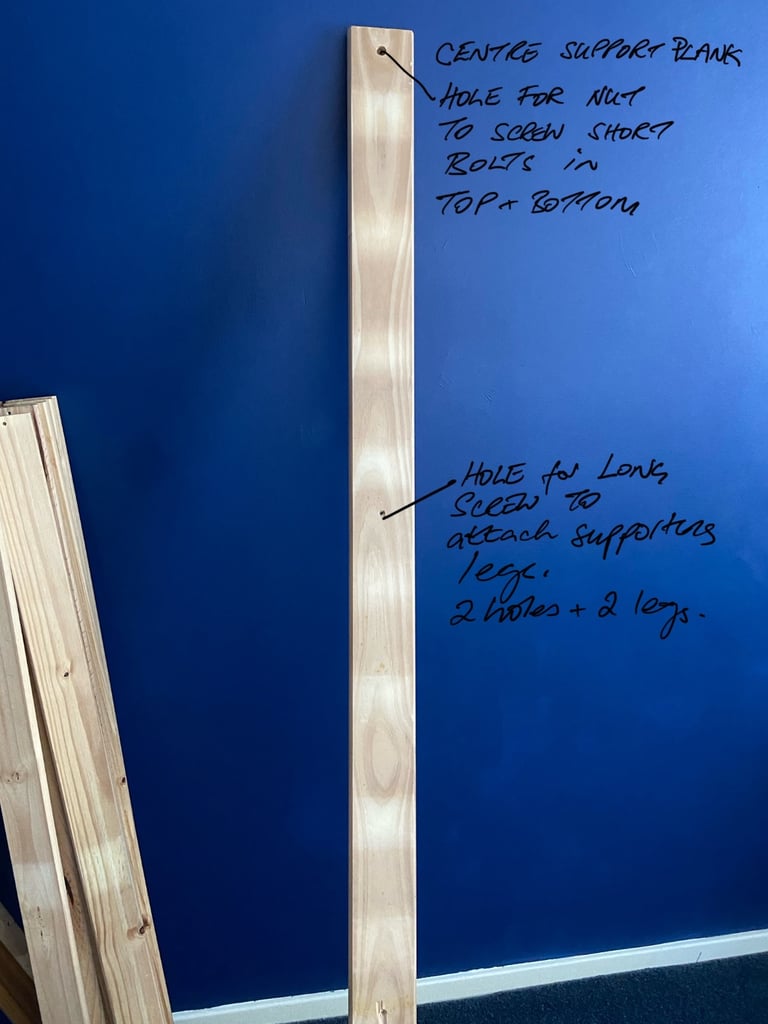 CENTRE SUPPORT PLANK
HOLE FOR NUT
TO SCREW SHORT
BOLTS in
TOP + BOTTOM
HOLE for LONG
SCREW TO
attach supporting
legs.
2 holes + 2 legs.